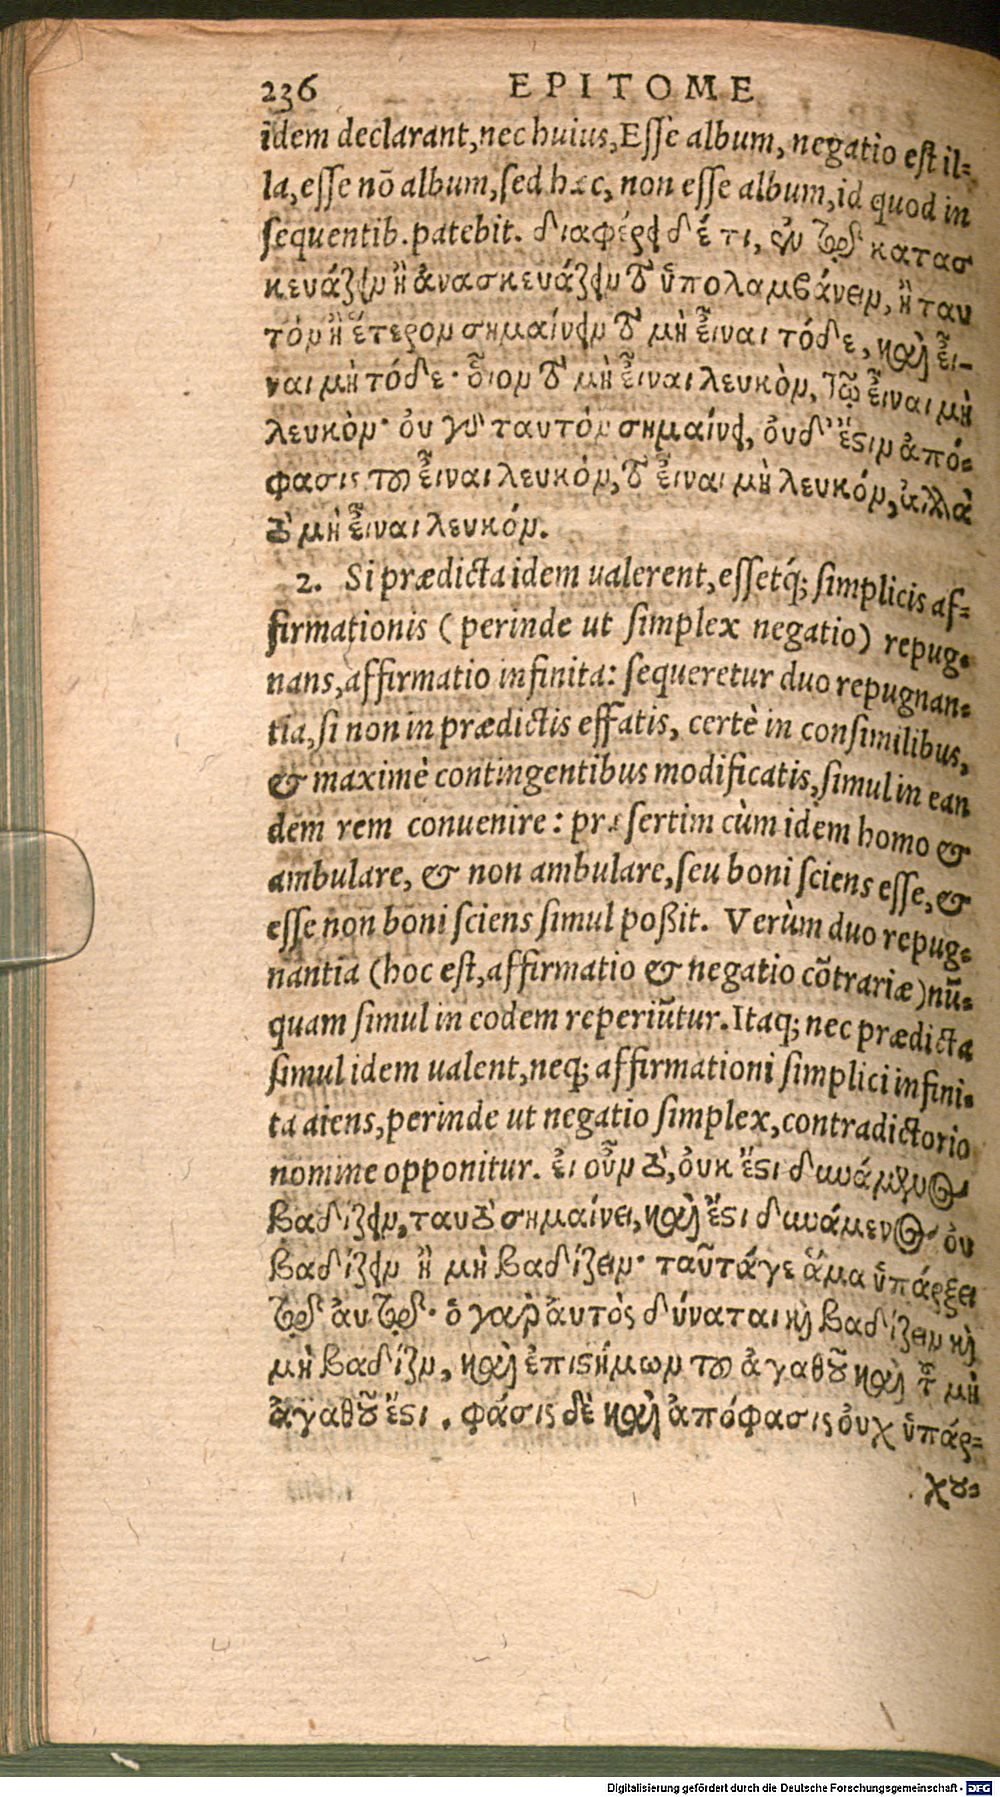 236 EPITOME
idem declarant, nec huius, Esse album, negatio est il-
la, esse nō album, sed hæc, non esse album, id quod in
sequentib. patebit. διαφέρει δέ τι, ἐν τῷ κατασ
κευάζειν ἢ ἀνασκευάζειν τὸ ὑπολαμβάνειν, ἢ ταυ
τὸν ἢ ἕτερον σημαίνειν τὸ μὴ εἶναι τόδε, καὶ εἶ-
ναι μὴ τόδε· οἷον τὸ μὴ εἶναι λευκὸν, τῷ εἶναι μὴ
λευκὸν· οὐ γὰρ ταυτὸν σημαίνει, οὐδ' ἔστιν ἀπό-
φασις τοῦ εἶναι λευκόν, τὸ εἶναι μὴ λευκόν, ἀλλὰ
τὸ μὴ εἶναι λευκόν.
2. Si prædicta idem ualerent, essetq́; simplicis af-
firmationis (perinde ut simplex negatio) repug-
nans, affirmatio infinita: sequeretur duo repugnan-
tia, si non in prædictis effatis, certè in consimilibus,
& maximè contingentibus modificatis, simul in ean
dem rem conuenire: præsertim cùm idem homo &
ambulare, & non ambulare, seu boni sciens esse, &
esse non boni sciens simul poßit. Verùm duo repug-
nantia (hoc est, affirmatio & negatio cōtrariæ) nū-
quam simul in eodem reperiūtur. Itaq; nec prædicta
simul idem ualent, neq; affirmationi simplici infini-
ta aiens, perinde ut negatio simplex, contradictorio
nomine opponitur. εἰ οὖν τὸ, οὐκ ἔστι δυνάμενος
βαδίζειν, ταυτὸ σημαίνει, καὶ ἔστι δυνάμενος οὐ
βαδίζειν ἢ μὴ βαδίζειν· ταῦτάγε ἅμα ὑπάρξει
τῷ αὐτῷ· ὁ γὰρ αὐτὸς δύναται καὶ βαδίζειν καὶ
μὴ βαδίζειν, καὶ ἐπιστήμων τοῦ ἀγαθοῦ καὶ τοῦ μὴ
ἀγαθοῦ ἔστι. φάσις δὲ καὶ ἀπόφασις οὐχ ὑπάρ-
χου-
Digitalisierung gefördert durch die Deutsche Forschungsgemeinschaft - DFG